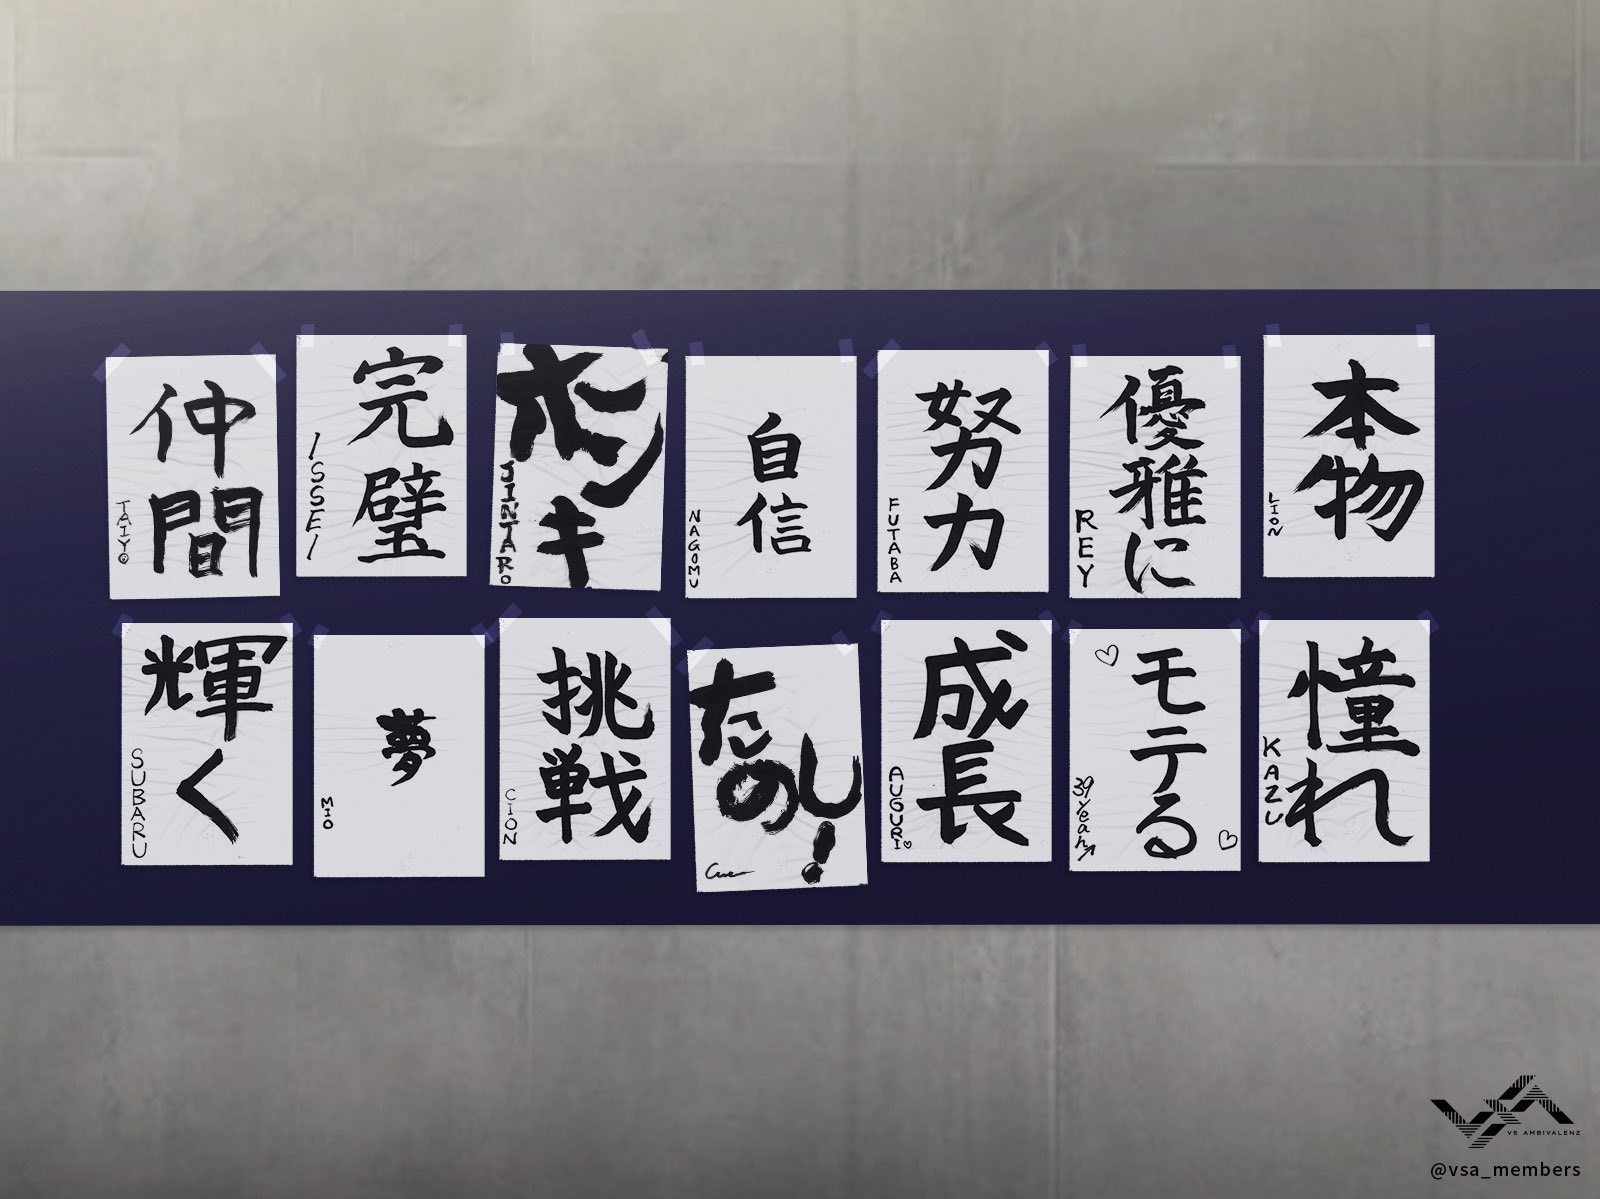 仲間
TAIYO
完璧
ISSEI
ホンキ
JINTARO
自信
NAGOMU
努力
FUTABA
優雅に
REY
本物
LION
輝く
SUBARU
夢
MIO
挑戦
CION
たのし!
成長
AUGURI♡
モテる
39year↗
憧れ
KAZU
VS AMBIVALENZ
@vsa_members